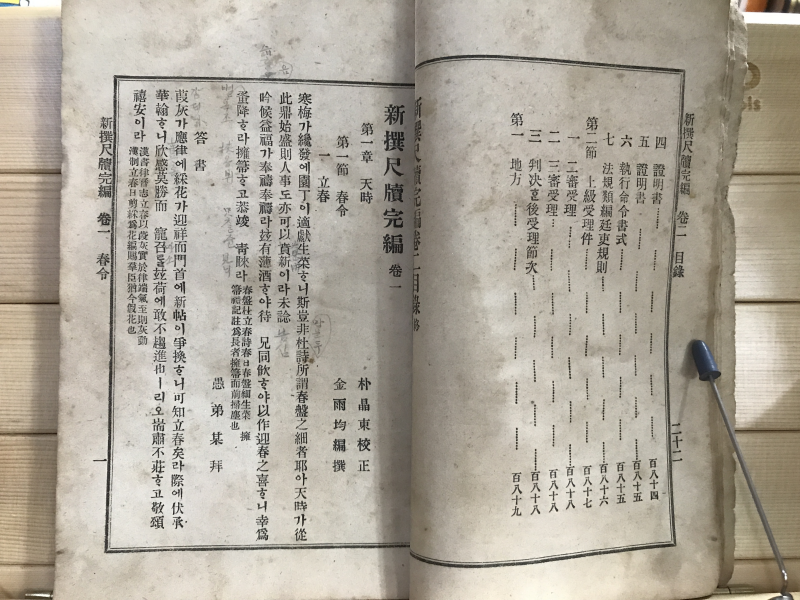 新撰尺牘完編 卷二 目錄 二十二
四 證明書 百八十四
五 證明書 百八十五
六 執行命令書式 百八十五
七 法規類編廷吏規則 百八十六
第二節 上級受理件 百八十七
一 二審受理 百八十八
二 三審受理 百八十八
三 判决ᄒᆞᆫ後受理節次 百八十八
第一 地方 百八十九
新撰尺牘完編卷二目錄終
新撰尺牘完編 卷一
朴晶東校正
金雨均編撰
第一章 天時
第一節 春令
一 立春
寒梅가纔發에園丁이適獻生菜ᄒᆞ니斯豈非杜詩所謂春盤之細者耶아天時가從
此鼎始盛則人事도亦可以賁新이라未諗
吟候益福가奉禱奉禱라玆有薄酒ᄒᆞ야待 兄同飮ᄒᆞ야以作迎春之喜ᄒᆞ니幸爲
蚤降ᄒᆞ라擁篲ᄒᆞ고恭竣 靑睞라
春盤杜立春詩春日春盤細生菜 擁
篲禮記註爲長者擁篲而前掃塵也
愚弟某拜
答書
葭灰가應律에綵花가迎祥而門首에新帖이爭換ᄒᆞ니可知立春矣라際에伏承
華翰ᄒᆞ니欣感莫勝而 寵召를玆荷에敢不趨進也ㅣ리오耑肅不莊ᄒᆞ고敬頌
禧安이라
漢書律曆志立春以葭灰實於律端氣至則灰動
漢制立春日剪綵爲花編賜羣臣猶今假花也
新撰尺牘完編 卷一 春令 一